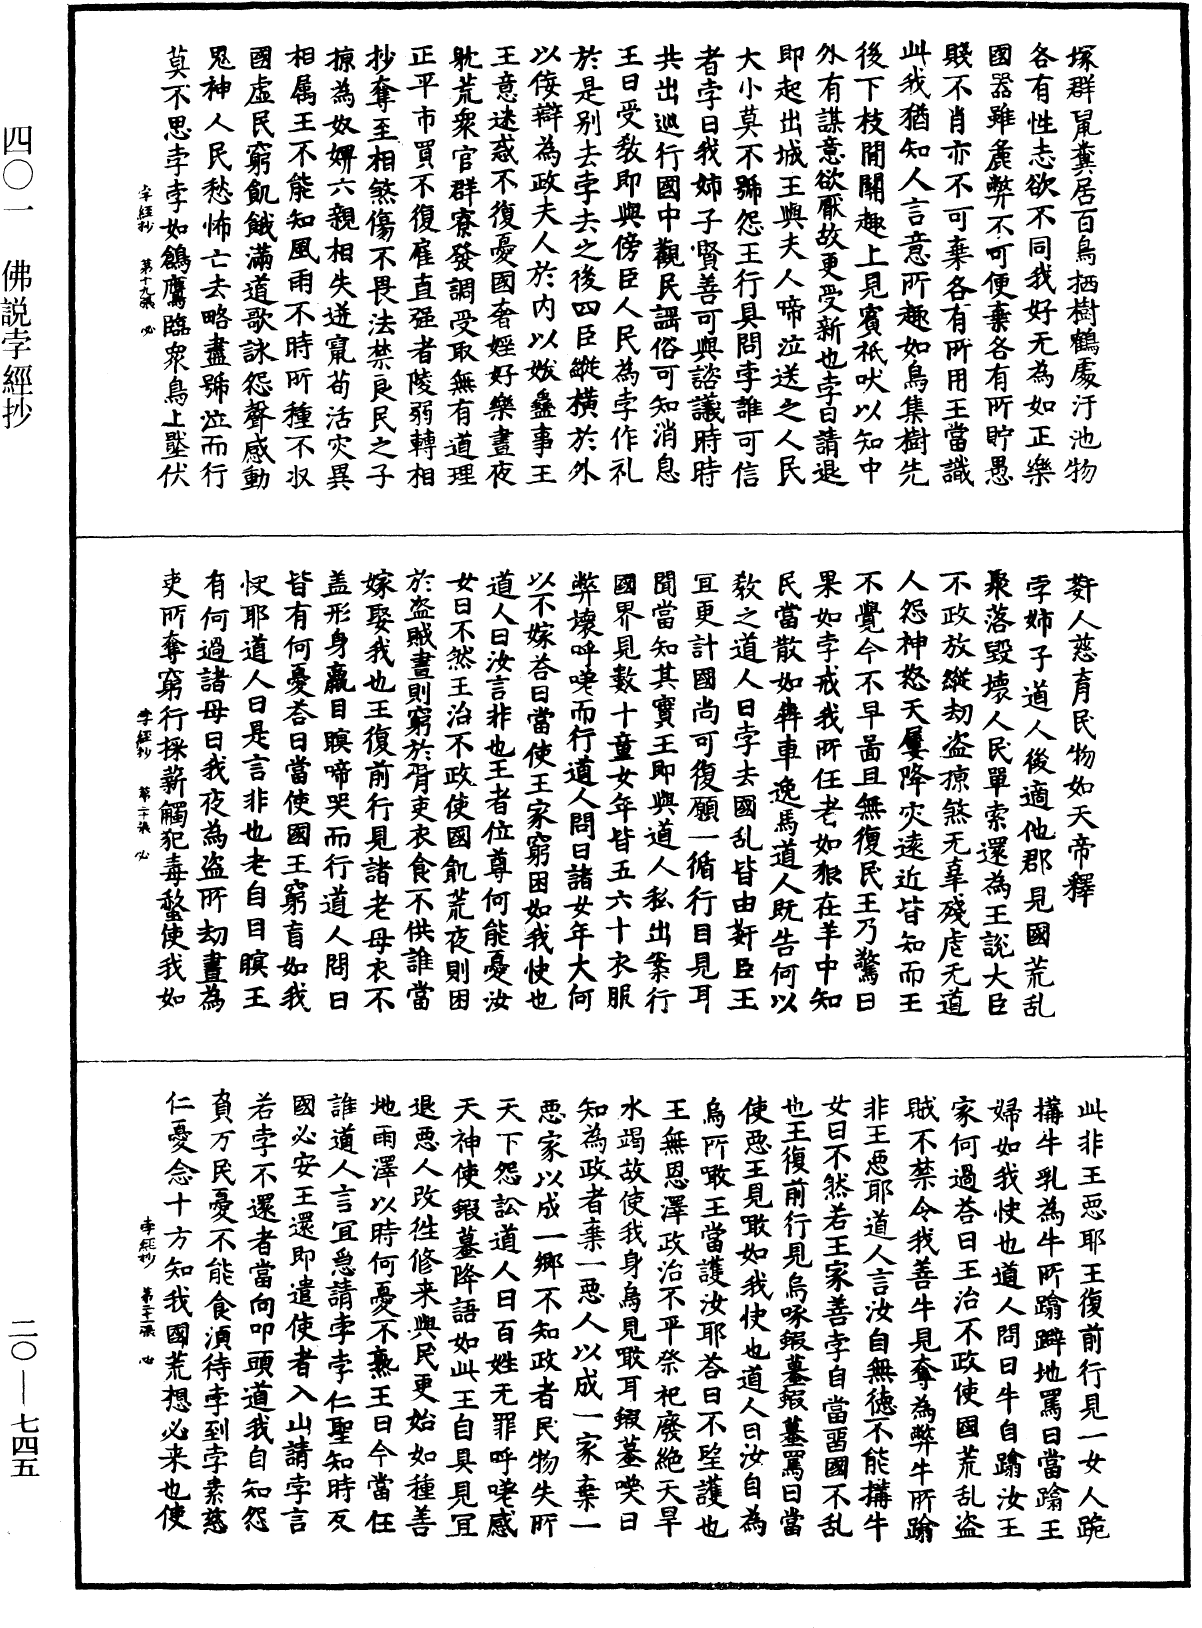 四〇一　佛説孛經抄
二〇—七四五
塜群鼠糞居百鳥栖樹鶴處汙池物
各有性志欲不同我好无為如正樂
國器雖麁弊不可便棄各有所貯愚
賤不肖亦不可棄各有所用王當識
此我猶知人言意所趣如鳥集樹先
後下枝閒關趣上見賓祇吠以知中
外有謀意欲猒故更受新也孛曰請退
即起出城王與夫人啼泣送之人民
大小莫不號怨王行具問孛誰可信
者孛曰我姉子賢善可與諮議時時
共出巡行國中觀民謡俗可知消息
王曰受教即與傍臣人民為孛作礼
於是別去孛去之後四臣縱橫於外
以侫辯為政夫人於内以妭蠱事王
王意迷惑不復憂國奢婬好樂晝夜
躭荒衆官群寮發調受取無有道理
正平市買不復雇直强者陵弱轉相
抄奪至相煞傷不畏法禁良民之子
掠為奴婢六親相失迸竄苟活灾異
相属王不能知風雨不時所種不収
國虚民窮飢餓滿道歌詠怨聲感動
鬼神人民愁怖亡去略盡號泣而行
莫不思孛孛如鶬鷹臨衆鳥上壁伏
孛經抄　第十九張　必
姧人慈育民物如天帝釋
孛姉子道人後適他郡見國荒乱
聚落毀壞人民單索還為王説大臣
不政放縱劫盗掠煞无辜殘虐无道
人怨神怒天屢降灾逺近皆知而王
不覺今不早啚且無復民王乃驚曰
果如孛戒我所任老如狼在羊中知
民當散如犇車逸馬道人既告何以
教之道人曰孛去國乱皆由姧臣王
冝更計國尚可復願一循行目見耳
聞當知其實王即與道人私出案行
國界見數十童女年皆五六十衣服
弊壞呼嗟而行道人問曰諸女年大何
以不嫁荅曰當使王家窮困如我快也
道人曰汝言非也王者位尊何能憂汝
女曰不然王治不政使國飢荒夜則困
於盗賊晝則窮於胥吏衣食不供誰當
嫁娶我也王復前行見諸老母衣不
盖形身羸目瞑啼哭而行道人問曰
皆有何憂荅曰當使國王窮盲如我
快耶道人曰是言非也老自目瞑王
有何過諸母曰我夜為盗所劫晝為
吏所奪窮行採薪觸犯毒螫使我如
孛經抄　第二十張　必
此非王惡耶王復前行見一女人跪
搆牛乳為牛所蹹躃地罵曰當蹹王
婦如我快也道人問曰牛自蹹汝王
家何過荅曰王治不政使國荒乱盗
賊不禁令我善牛見奪為弊牛所蹹
非王惡耶道人言汝自無德不能搆牛
女曰不然若王家善孛自當畱國不乱
也王復前行見烏啄蝦蟇蝦蟇罵曰當
使惡王見噉如我快也道人曰汝自為
烏所噉王當護汝耶荅曰不望護也
王無恩澤政治不平祭祀廢絶天旱
水竭故使我身烏見噉耳蝦蟇嘆曰
知為政者棄一惡人以成一家棄一
惡家以成一郷不知政者民物失所
天下怨訟道人曰百姓无罪呼嗟感
天神使蝦蟇降語如此王自具見冝
退惡人改徃修来與民更始如種善
地雨澤以時何憂不熟王曰今當任
誰道人言冝急請孛孛仁聖知時反
國必安王還即遣使者入山請孛言
若孛不還者當向叩頭道我自知怨
負万民憂不能食湏待孛到孛素慈
仁憂念十方知我國荒想必来也使
孛經抄　第二十一張　必